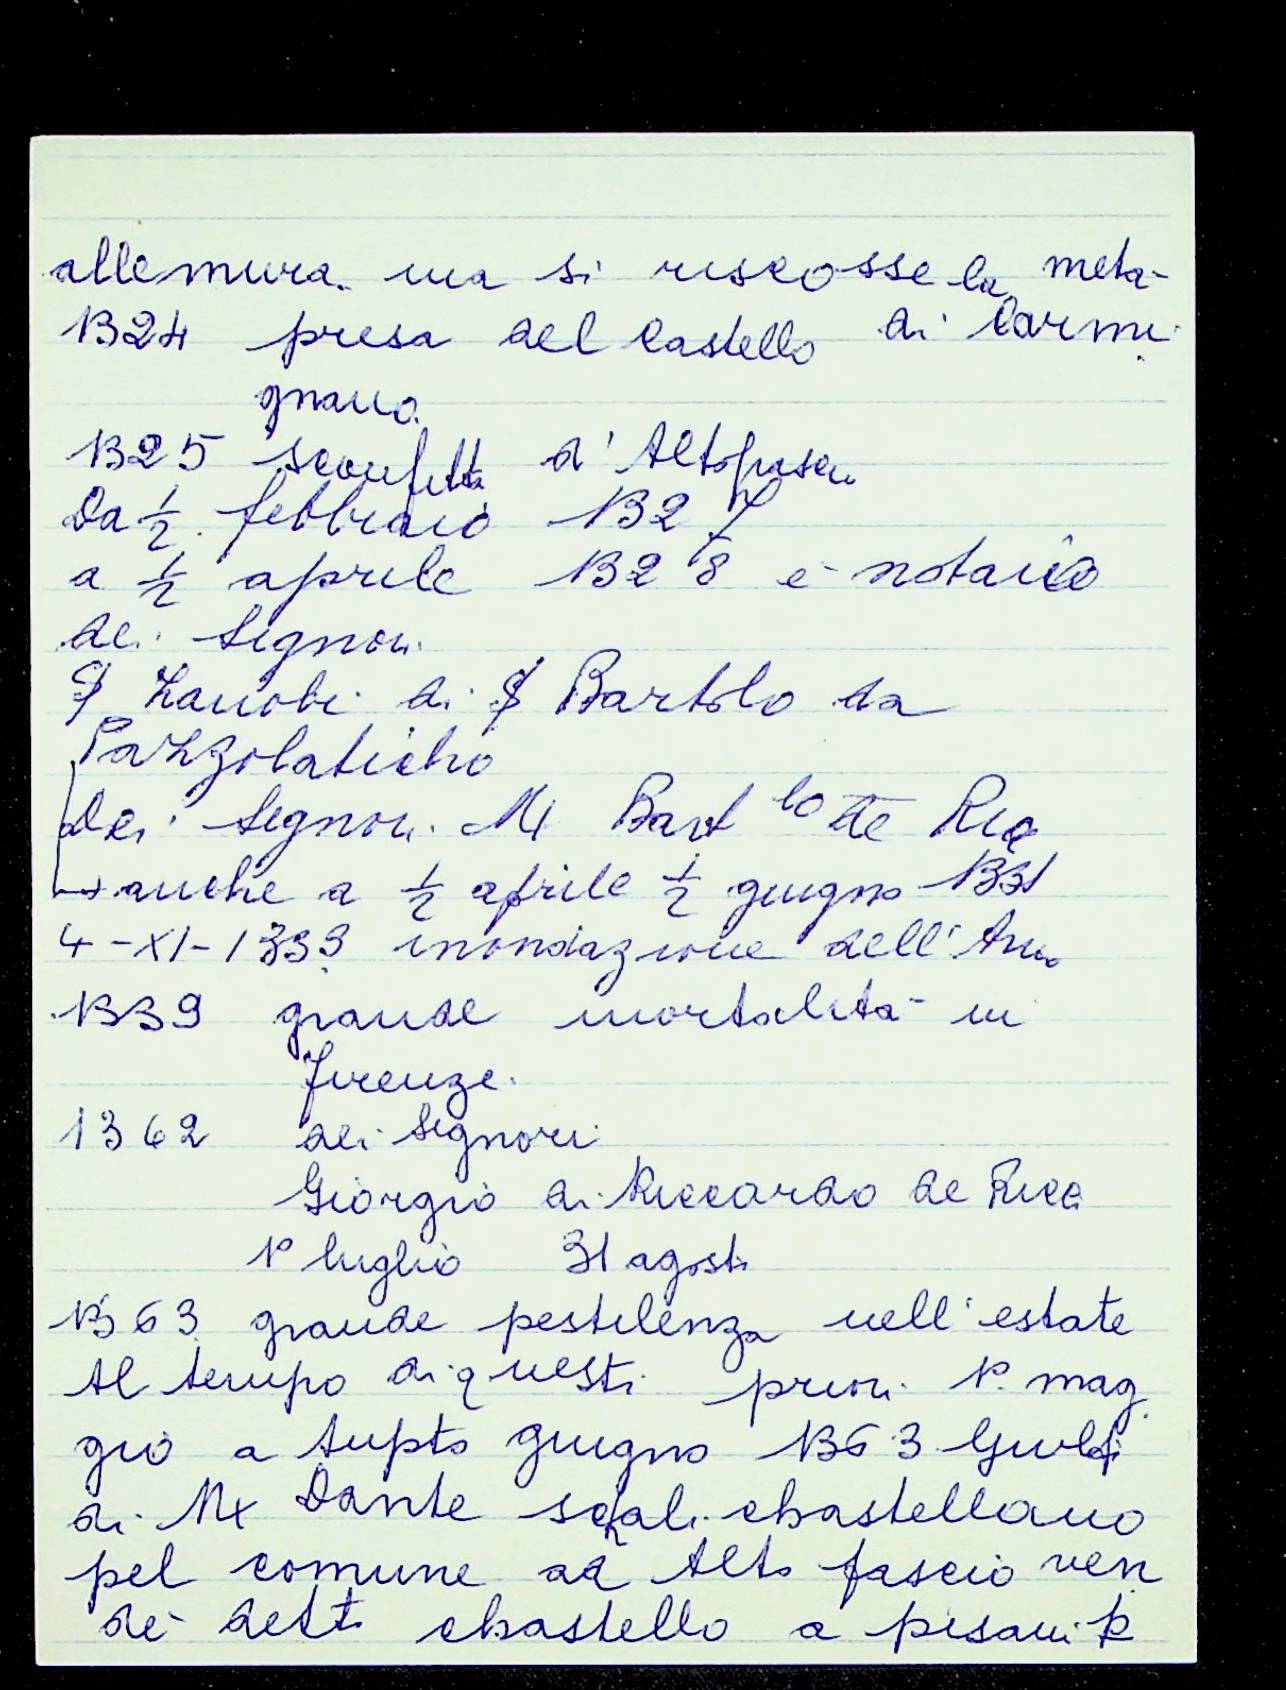 alle mura. ma si riscosse la metà
1324 presa del Castello di Carmi
gnano.
1325 sconfitta d'Altopascio
Da ½ febbraio 1327
a ½ aprile 1328 è notaio
dei Signori
S Zanobi di S Bartolo da
Pazzolaticho
Dei Signori M Bart lo de Ricc
→ anche a ½ aprile ½ giugno 1331
4-XI-1333 inondazione dell'Arno
1339 grande mortalità in
Firenze.
1362 dei Signori
Giorgio di Riccardo de Ricci
1º luglio 31 agosto
1363 grande pestilenza nell'estate
Al tempo di questi priori 1º mag
gio a tupto giugno 1363 Guelfo
di M Dante scali chastellano
pel comune ad Alto fascio ven
dé detto chastello a pisani p